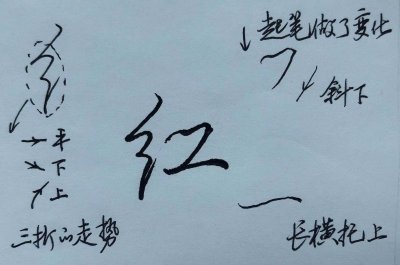 起笔做了变化
斜下
红
平
下
上
三折的走势
长横托上